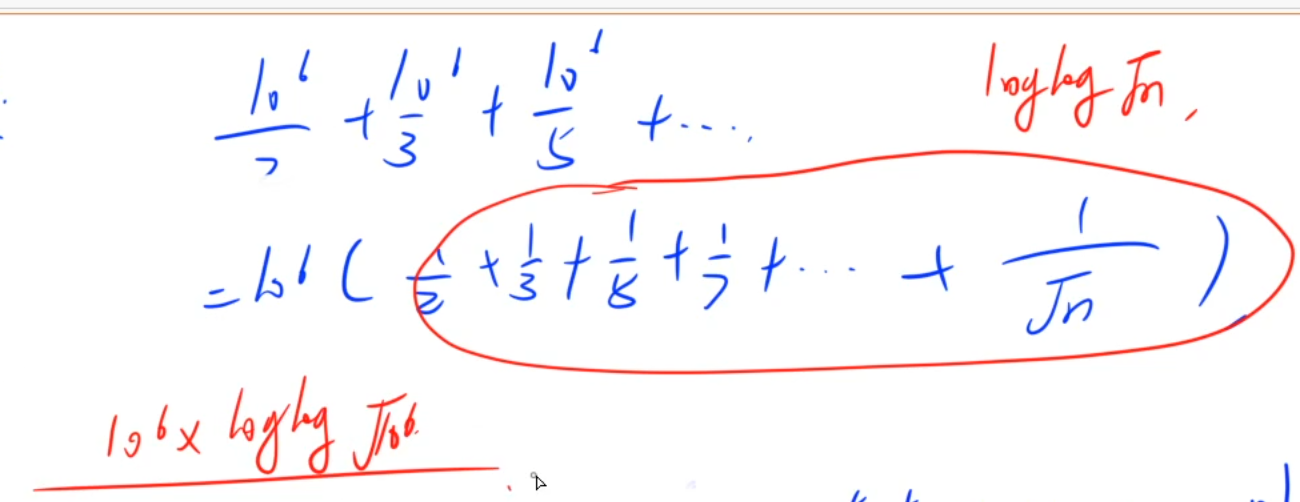 10^6/2 + 10^6/3 + 10^6/5 + ....
log log √n,
= 10^6 ( 1/2 + 1/3 + 1/5 + 1/7 + ... + 1/√n )
10^6 × log log √10^6.